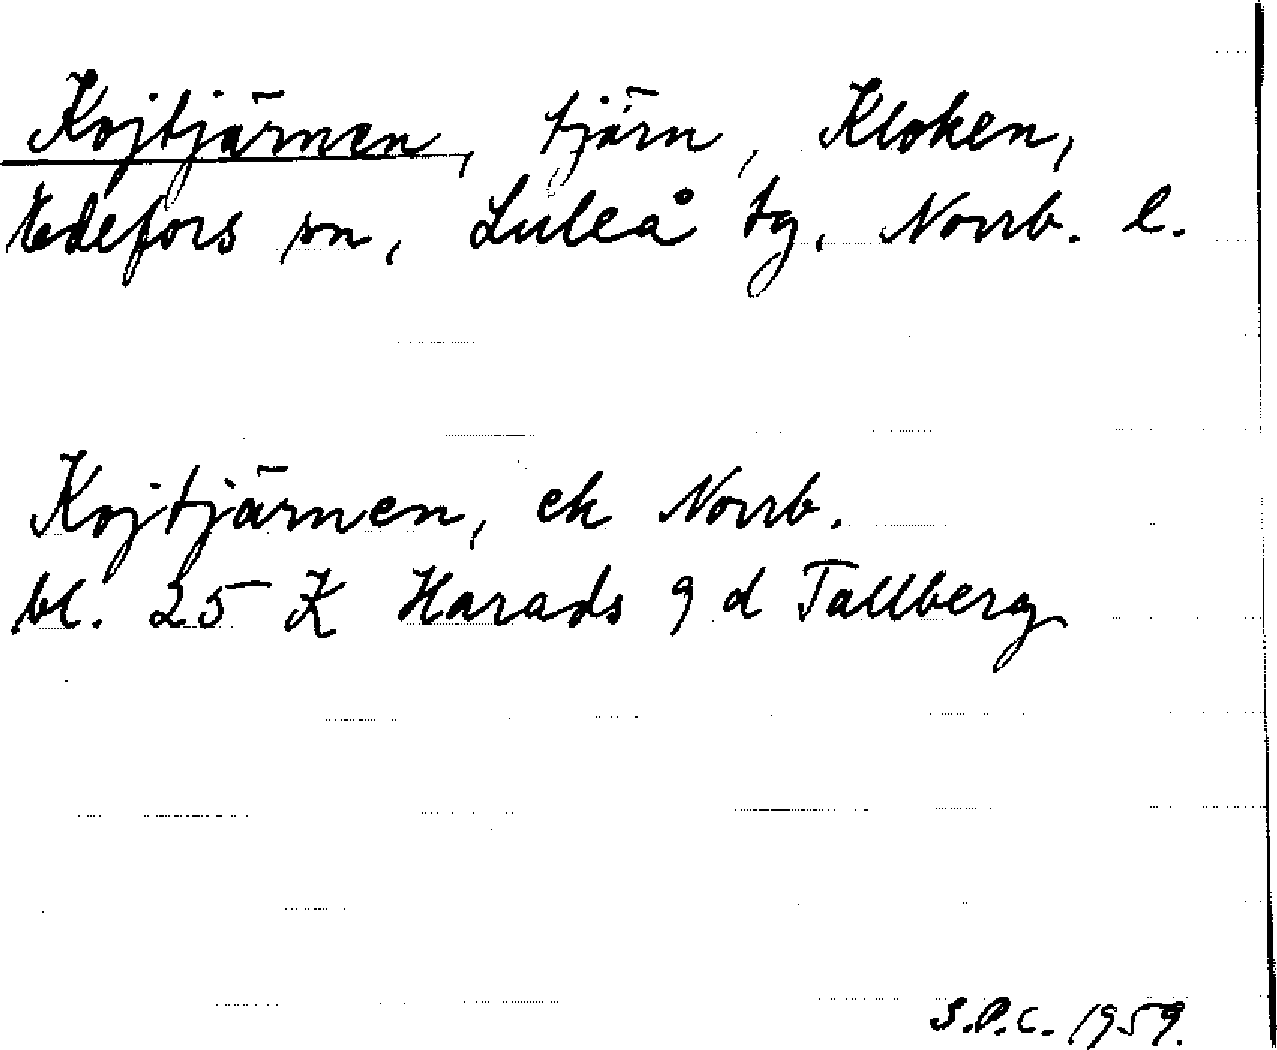 Kojtjärnen, tjärn, Kloken,
Edefors sn, Luleå tg, Norrb. l.
Kojtjärnen, ek Norrb.
bl. 25 K Harads 9 d Tallberg
S.P.C. 1959.